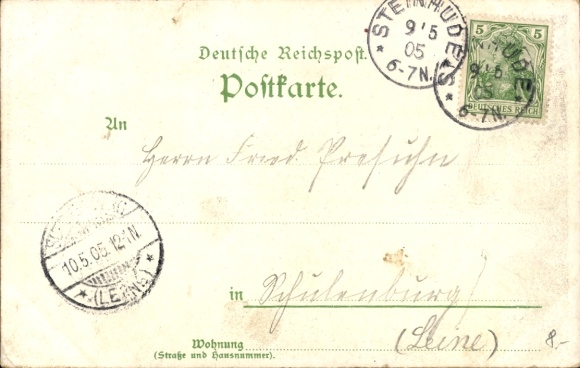 STEINHUDE
9 5
05
6-7N.
STEINHUDE
9 5
05
6-7N.
5 5
DEUTSCHES REICH
Deutsche Reichspost.
Postkarte.
An
Herrn Fried Presuhn
10.5.05.12-1N.
(LEINE)
in Schulenburg
(Leine)
Wohnung
(Straße und Hausnummer).
8.-